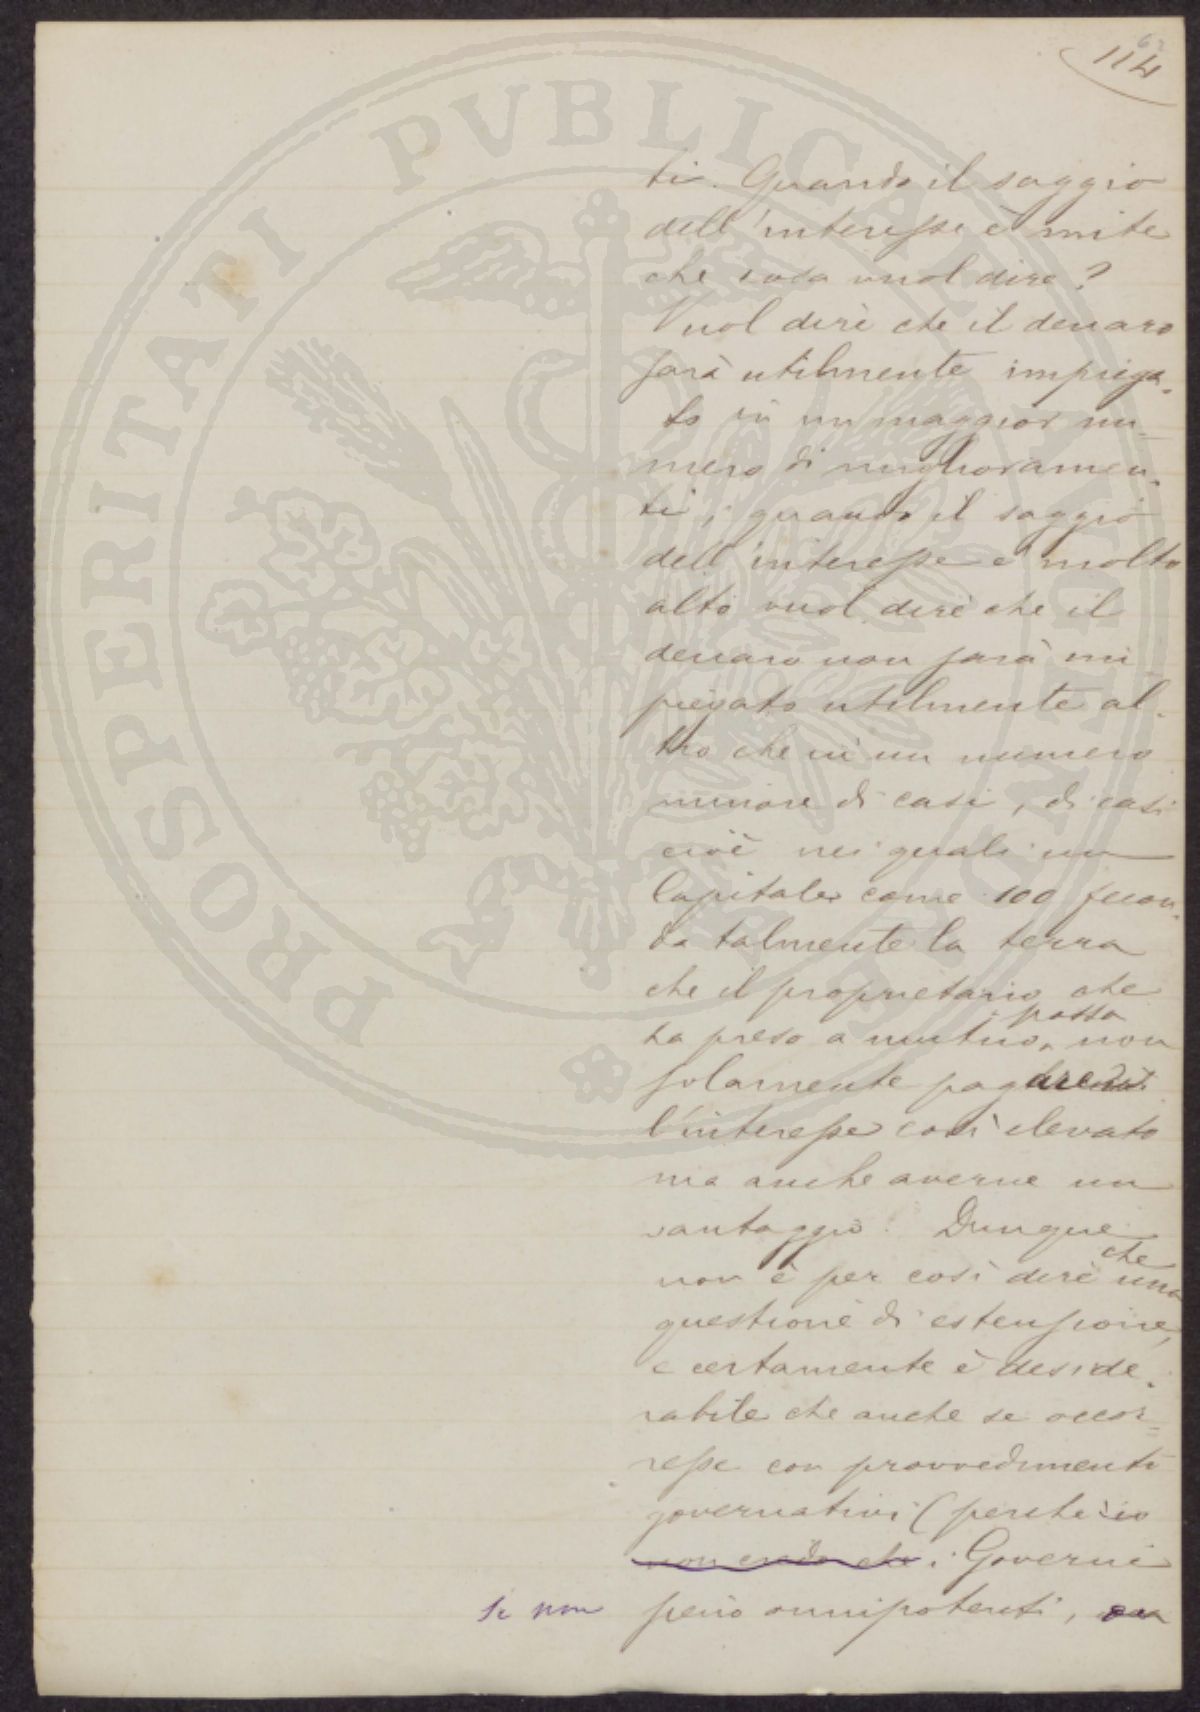 114
ti. Quando il saggio
dell'interesse è mite
che cosa vuol dire?
Vuol dire che il denaro
sarà utilmente impiega-
to in un maggior nu-
mero di miglioramen-
ti; quando il saggio
dell'interesse è molto
alto vuol dire che il
denaro non sarà im
piegato utilmente al-
tro che in un numero
minore di casi, di casi
cioè nei quali un
Capitale come 100 fecon-
da talmente la terra
che il proprietario che
ha preso a mutuo possa non
solamente pagare
l'interesse così elevato
ma anche averne un
vantaggio. Dunque
non è per così dire che una
questione di estensione,
e certamente è deside-
rabile che anche se occor-
resse con provvedimenti
governativi (perchè io
non credo che i Governi
se non sieno onnipotenti,
PROSPERITATI PVBLICAE AVGENDAE